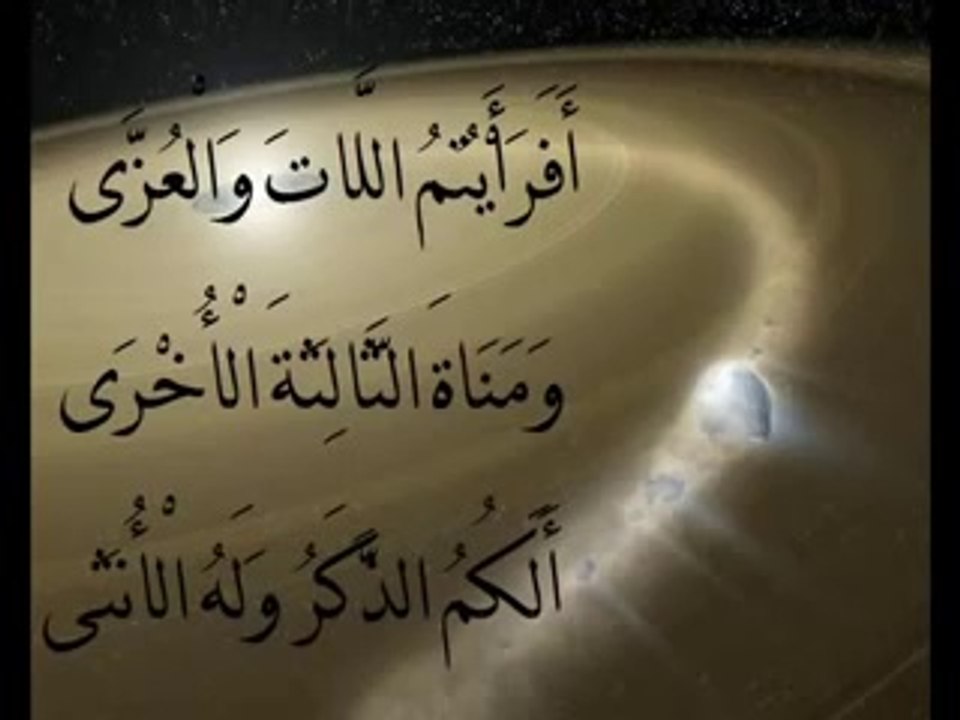 أَفَرَأَيْتُمُ اللَّاتَ وَالْعُزَّى
وَمَنَاةَ الثَّالِثَةَ الْأُخْرَى
أَلَكُمُ الذَّكَرُ وَلَهُ الْأُنْثَى